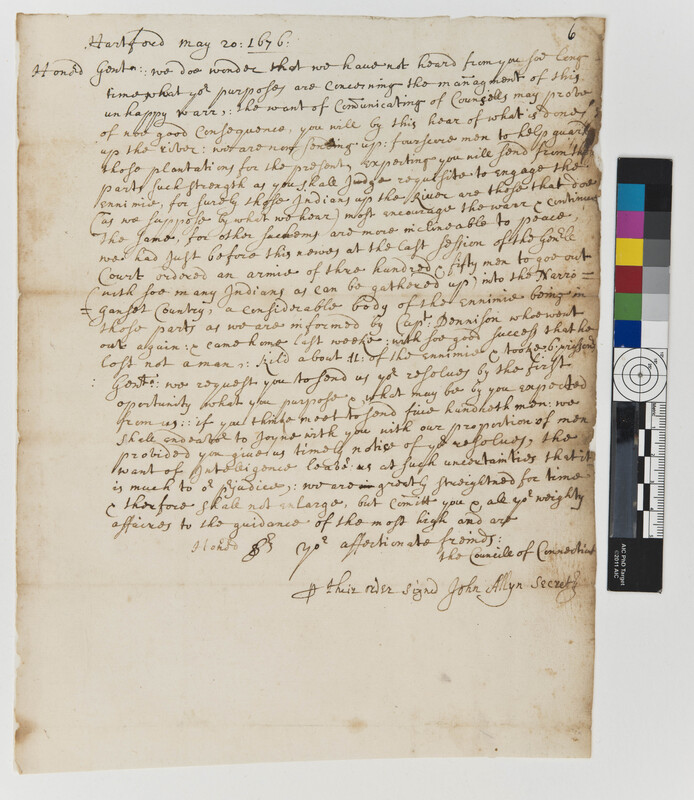 6
Hartford may 20: 1676:
Honord Gentn:: we doe wonder that we have not heard from you soe long
time what yor purposes are Concerning the managment of this
unhappy warr,: the want of Comunicating of Counsells may prove
of noe good Consequence, you will by this hear of what is done
up the river: we are now sending up: fourscore men to help guard
those plantations for the present, expecting you will send from the
parts such strength as you shall Judge requisite to engage the
Ennimie, for surely those Indians up the River are those that doe
(as we suppose by what we hear) most encourage the warr & Continue
the same, for other sachems are more inclineable to peace,
we had Just before this newes at the last session of the Genll
Court ordered an armie of thre hundred & fifty men to goe out
(with soe many Indians as can be gathered up) into the Narro=
=ganset Country, a considerable body of the ennimie being in
those parts as we are informed by Capt Dennison who went
out again: & came home last weeke: with soe good success that he
lost not a man,: kild about 11: of the ennimie & tooke 6 prissonrs
: Gentn: we request you to send us yor resolves by the first
oportunity what you purpose & what may be by you expected
from us:: if you thinke meet to send five hundreth men: we
shall endeavor to Joyne with you with our proportion of men
provided you give us timely notice of yor resolves, the
want of Intelligence leaves us at such uncertainties that it
is much to or prjudice,: we are greatly streightned for time
& therfore shall not enlarge, but Comitt you & all yor weighty
affaires to the guidance of the most high and are
Honord Srs yor affectionate freinds:
the Councill of Connecticut
p their order signd John Allyn Secretry
AIC PhD Target
©2011 AIC